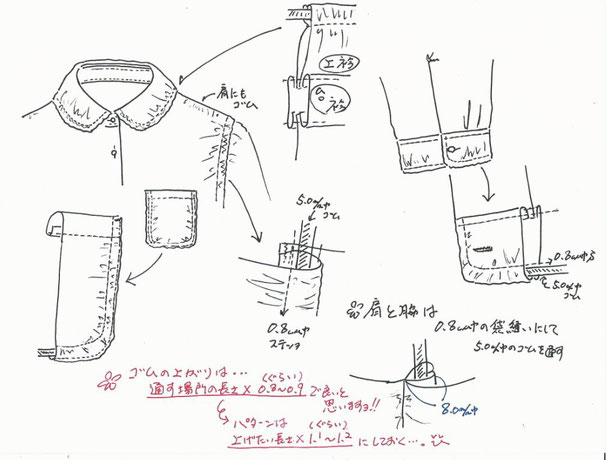 上衿
台衿
肩にも
ゴム
5.0m/m巾
ゴム
0.8cm巾
ステッチ
0.8cm巾
5.0m/m巾
ゴム
肩と脇は
0.8cm巾の袋縫いにして
5.0m/m巾のゴムを通す
8.0m/m巾
ゴムの上がりは…
(ぐらい)
通す場所の長さ×0.8~0.9で良いと
思いますョ!!
パターンは
(ぐらい)
上げたい長さ×1.1~1.2にしておく…。